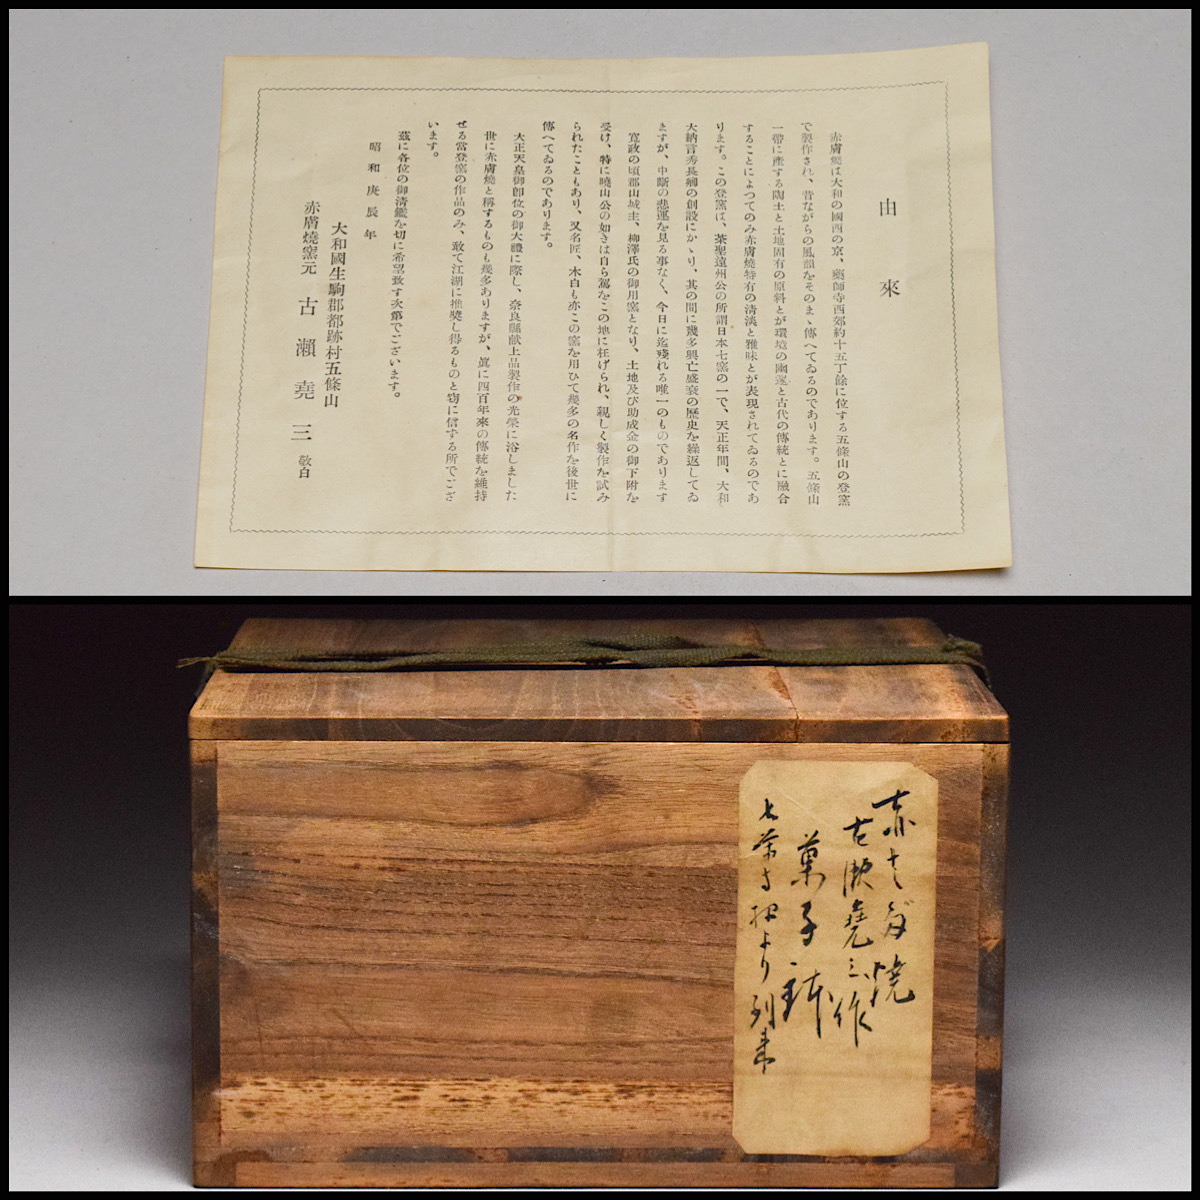 由來
赤膚燒は大和の國西の京、藥師寺西郊約十五丁餘に位する五條山の登窯
で製作され、昔ながらの風韻をそのまゝ傳へてゐるのであります。五條山
一帶に產する陶土と土地固有の原料とが環境の幽邃と古代の傳統とに融合
することによつてのみ赤膚燒特有の清淡と雅味とが表現されてゐるのであ
ります。この登窯は、茶聖遠州公の所謂日本七窯の一で、天正年間、大和
大納言秀長卿の創設にかゝり、其の間に幾多興亡盛衰の歷史を繰返してゐ
ますが、中斷の悲運を見る事なく、今日に迄殘れる唯一のものであります
寬政の頃郡山城主、柳澤氏の御用窯となり、土地及び助成金の御下附を
受け、特に曉山公の如きは自ら駕をこの地に枉げられ、親しく製作を試み
られたこともあり、又名匠、木白も亦この窯を用ひて幾多の名作を後世に
傳へてゐるのであります。
大正天皇御卽位の御大禮に際し、奈良縣献上品製作の光榮に浴しました
世に赤膚燒と稱するものも幾多ありますが、眞に四百年來の傳統を維持
せる當登窯の作品のみ、敢て江湖に推奬し得るものと窃に信ずる所でござ
います。
茲に各位の御清鑑を切に希望致す次第でございます。
昭和庚辰年
大和國生駒郡都跡村五條山
赤膚燒窯元 古瀨堯三 敬白
赤はだ燒
古瀬堯三作
菓子鉢
より到来